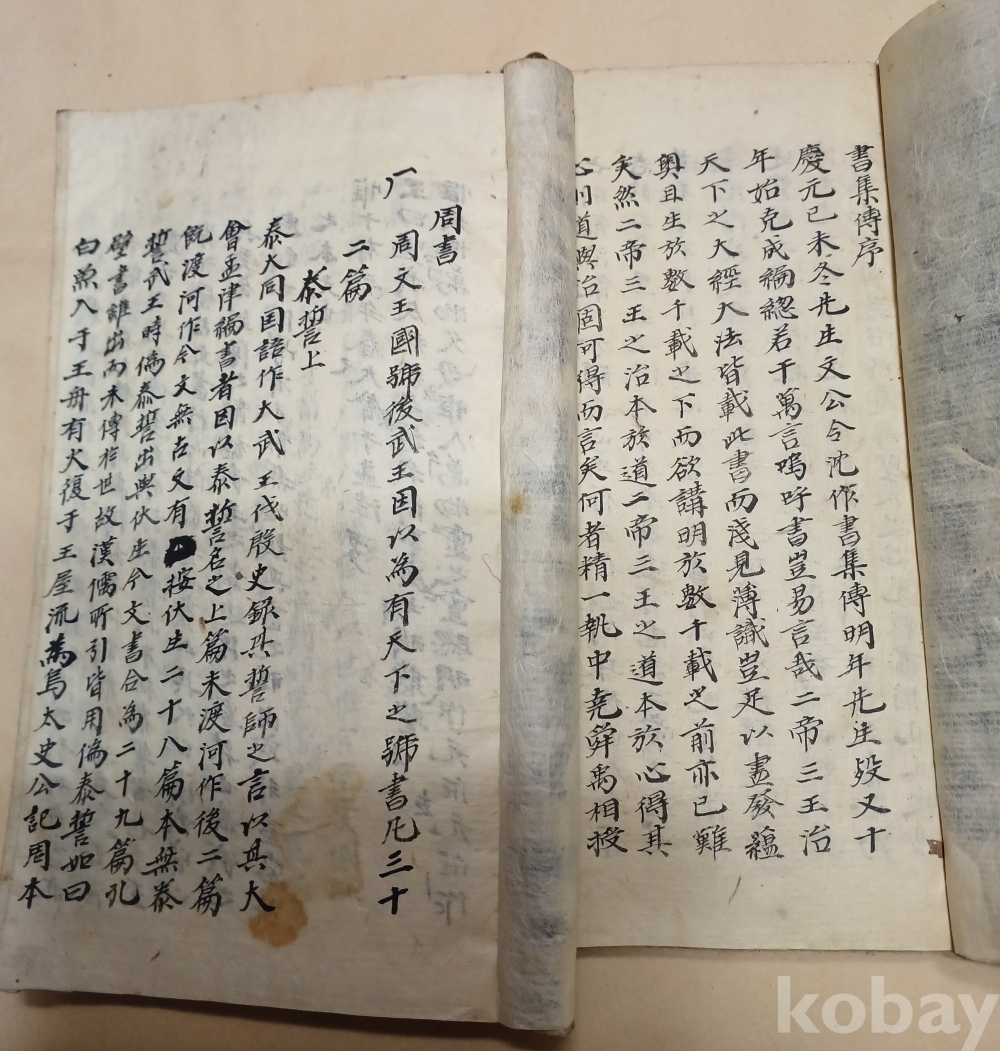 書集傳序
慶元已未冬先生文公令沈作書集傳明年先生歿又十
年始克成編總若干萬言嗚呼書豈易言哉二帝三王治
天下之大經大法皆載此書而淺見薄識豈足以盡發蘊
奧且生於數千載之下而欲講明於數千載之前亦已難
矣然二帝三王之治本於道二帝三王之道本於心得其
心則道與治固可得而言矣何者精一執中堯舜禹相授
周書
周文王國號後武王因以為有天下之號書凡三十
二篇
泰誓上
泰大同国語作大武王伐殷史錄其誓師之言以其大
會孟津編書者因以泰誓名之上篇未渡河作後二篇
旣渡河作今文無古文有按伏生二十八篇本無泰
誓武王時偽泰誓出與伏生今文書合為二十九篇孔
壁書雖出而未傳於世故漢儒所引皆用偽泰誓如曰
白魚入于王舟有火復于王屋流為烏太史公記周本
kobay